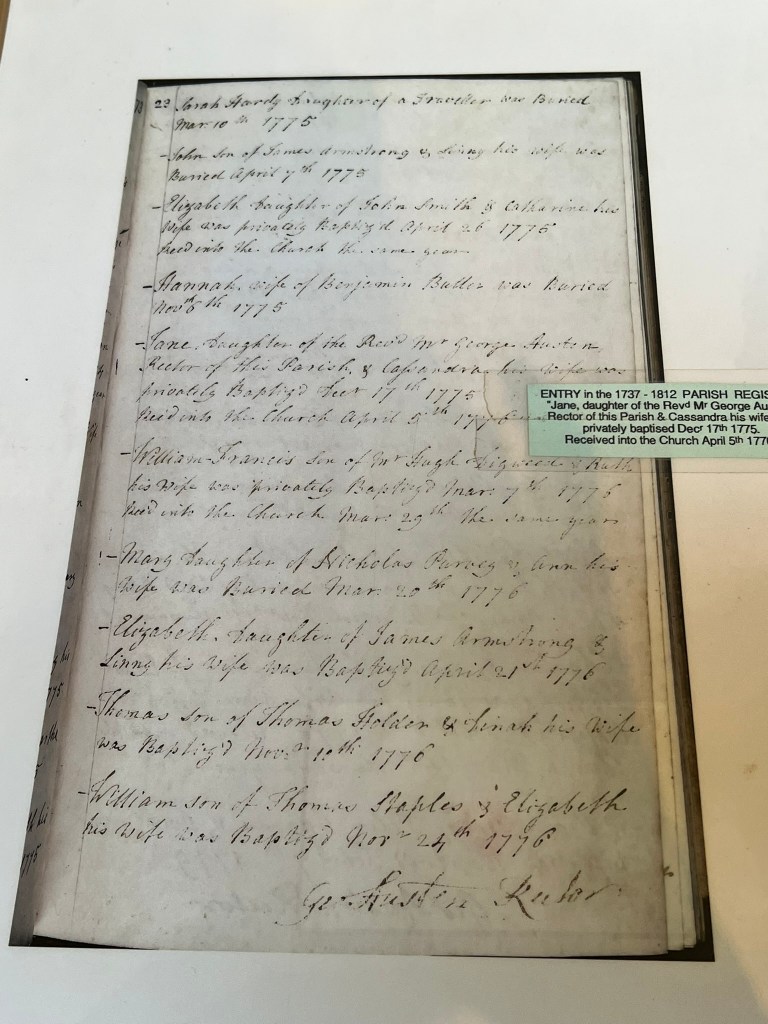 23 Sarah Hardy Daughter of a Traveller was Buried
Mar: 10th 1775
- John son of James Armstrong & Linny his wife was
Buried April 7th 1775
- Elizabeth Daughter of John Smith & Catharine his
wife was privately Baptiz'd April 26 1775
Rec'd into the Church the same year
- Hannah wife of Benjamin Butler was Buried
1775
- Jane Daughter of the Revd Mr George Austen
Rector of this Parish, & Cassandra his wife was
privately Baptiz'd Decr 17th 1775
Rec'd into the Church April 5th 1776
- William-Francis son of Mr Hugh Digweed & Ruth
his wife was privately Baptiz'd Mar: 7th 1776
Rec'd into the Church Mar: 29th the same year
- Mary Daughter of Nicholas & Ann his
wife was Buried Mar: 20th 1776
- Elizabeth Daughter of James Armstrong &
Linny his wife was Baptiz'd April 21st 1776
- Thomas son of Thomas Holder & Dinah his wife
was Baptiz'd Novr 10th 1776
- William son of Thomas Staples & Elizabeth
his wife was Baptiz'd Novr 24th 1776
Geo: Austen Rector
ENTRY in the 1737 - 1812 PARISH REGIS
"Jane, daughter of the Revd Mr George Au
Rector of this Parish & Cassandra his wife
privately baptised Decr 17th 1775.
Received into the Church April 5th 177